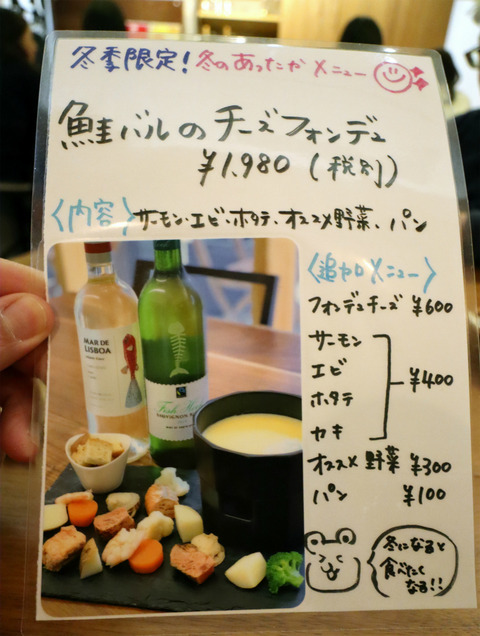 冬季限定!冬のあったかメニュー
鮭バルのチーズフォンデュ
¥1,980(税別)
〈内容〉サーモン・エビ・ホタテ、オススメ野菜、パン
MAR DE
LISBOA
SAUVIGNON
〈追加メニュー〉
フォンデュチーズ ¥600
サーモン
エビ
ホタテ
カキ
¥400
オススメ野菜 ¥300
パン ¥100
冬になると
食べたく
なる!!